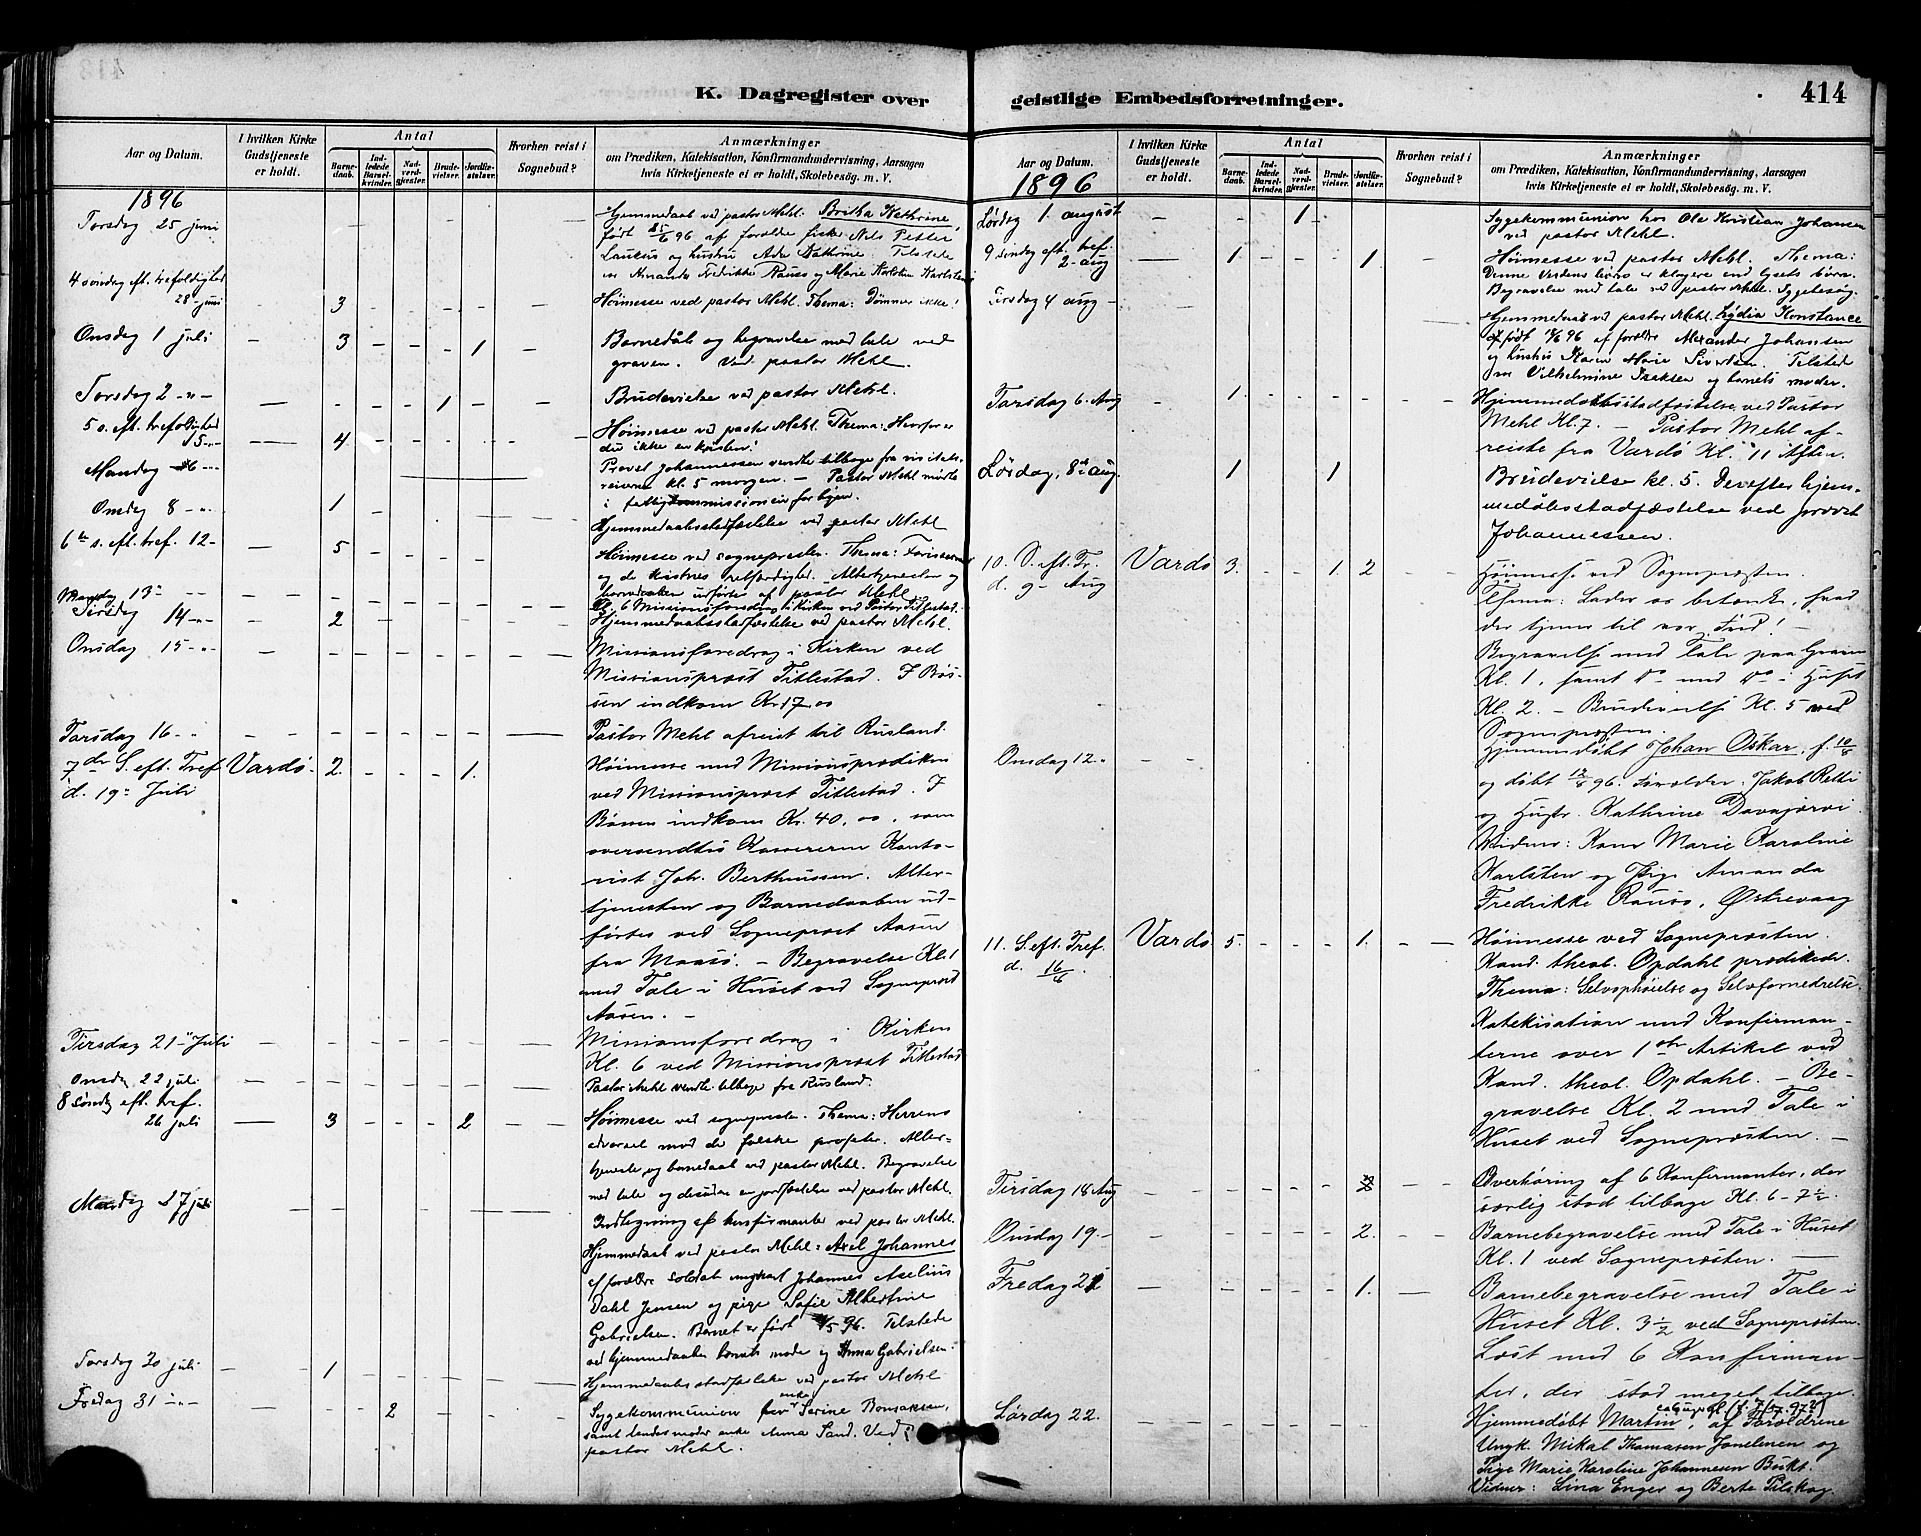 K. Dagregister over
geistlige Embedsforretninger.
414
Aar og Datum.
I hvilken Kirke Gudstjeneste er holdt.
Antal
Barne-daab.
Ind-ledede Barsel-kvinder.
Nad-verd-gjester.
Brude-vielser.
Jordfæ-stelser.
Hvorhen reist i Sognebud?
Anmærkninger
om Prædiken, Katekisation, Konfirmandundervisning, Aarsagen
hvis Kirketjeneste ei er holdt, Skolebesøg. m. V.
1896
Torsdag 25 juni
Hjemmedaab ved pastor Mehl. Britha Kathrine,
født 96 af forældre fisker Nils Petter
4 søndag eft. trefoldighed
28 juni 3
Høimesse ved pastor Mehl. Thema: Dømmer ikke!
Onsdag 1 juli 3 1
Barnedåb og begravelse med tale ved
graven. Ved pastor Mehl.
Torsdag 2 -"- 1
Brudevielse ved pastor Mehl.
5 s. eft. trefoldighed
5 -"- 4
Høimesse ved pastor Mehl. Thema: Hvorfor er
du ikke en kristen?
Mandag 6 -"-
Provst Johannessen vendte tilbage fra visitats-
reiserne kl. 5 morgen. — Pastor Mehl mødte
i fattigkommissionen for byen.
Onsdag 8 -"- 1
Hjemmedaabsstadfæstelse ved pastor Mehl
6te s. eft. tref. 12 - 5
Høimesse ved sognepresten. Thema: Farisæernes
og de kristnes retfærdighed. Altertjenesten og
barnedaaben udførtes af pastor Mehl
Mandag 13 -
Kl. 6 Missionsforedrag i Kirken ved Pastor Titlestad.
Tirsdag 14 -"- 2
Hjemmedaabsstadfæstelse ved pastor Mehl.
Onsdag 15 -"-
Missionsforedrag i Kirken ved
Missionsprest Titlestad. I Bøs-
sen indkom Kr. 17.00
Torsdag 16 -"-
Pastor Mehl afreist til Rusland.
7de S. eft. Tref. Vardø. 2. 1.
d. 19 Juli
Høimesse med Missionsprædiken
ved Missionsprest Titlestad. I
Bøssen indkom Kr. 40,00, som
oversendtes Kassereren Konto-
rist Joh. Berthinssen. Alter-
tjenesten og Barnedaaben ud-
førtes ved Sogneprest Aasen
fra Maasø. — Begravelse Kl. 1
med Tale i Huset ved Sogneprest
Aasen. —
Tirsdag 21 - Juli
Missionsforedrag i Kirken
Kl. 6 ved Missionsprest Titlestad
Onsdag 22 juli
Pastor Mehl vendte tilbage fra Rusland.
8 søndag eft. tref.
26 juli 3 2
Høimesse ved sognepresten. Thema: Herrens
advarsel mod de falske profeter. Alter-
tjeneste og barnedaab ved pastor Mehl. Begravelse
med tale og desuden en jordfæstelse ved pastor Mehl.
Mandag 27 juli
Indlegning af konfirmanter ved pastor Mehl.
Hjemmedaab ved pastor Mehl: Axel Johannes
af forældre soldat ungkarl Johannes Axelius
Dahl Jensen og pige Sofie Albertine
Gabrielsen. Barnet er født /5 96. Tilstede
ved hjemmedaaben barnets moder og Anna Gabrielsen.
Torsdag 30 juli 1
Hjemmedaabsstadfæstelse ved pastor Mehl
Fredag 31 -"- 2
Sygekommunion for enke Serine Bomaksen,
samt hendes moder enke Anna Sand. Ved
pastor Mehl.
Aar og Datum.
I hvilken Kirke Gudstjeneste er holdt.
Antal
Barne-daab.
Ind-ledede Barsel-kvinder.
Nad-verd-gjester.
Brude-vielser.
Jordfæ-stelser.
Hvorhen reist i Sognebud?
Anmærkninger
om Prædiken, Katekisation, Konfirmandundervisning, Aarsagen
hvis Kirketjeneste ei er holdt, Skolebesøg. m. V.
1896
Lørdag 1. august 1
Sygekommunion hos Ole Kristian Johansen
ved pastor Mehl.
9 søndag eft. tref.
2 - aug 1 1
Høimesse ved pastor Mehl. Thema:
Denne verdens børn er klogere end lysets børn.
Begravelse med tale ved pastor Mehl. Sygebesøg.
Tirsdag 4 aug -
Hjemmedaab ved pastor Mehl. Lydia Konstance
født 96 af forældre Alexander Johansen
og hustru Karen Marie Sivertsen. Tilstede
var Vilhelmine Isaksen og barnets moder.
Torsdag 6. Aug 1.
Hjemmedaabsstadfæstelse ved Pastor
Mehl Kl. 7. — Pastor Mehl af-
reiste fra Vardø Kl. 11 Aften.
Lørdag, 8de Aug. 1 1
Brudevielse kl. 5. Derefter hjem-
medåbsstadfæstelse ved provst
Johannessen.
10. S. eft. Tr. Vardø 3. 1. 2
d. 9 - Aug
Høimesse ved Sognepresten.
Thema: Lader os betænke, hvad
der tjener til vor Fred! —
Begravelse med Tale paa Graven
Kl. 1, samt do med do i Huset
Kl. 2. — Brudevielse Kl. 5 ved
Sognepresten.
Onsdag 12.
Hjemmedøbt Johan Oskar, f. 10/8
og døbt 12/8 96. Forældre: Jakob Retti
og Hustr. Kathrine Davajärvi.
Vidner: Kone Marie Karoline
Karlsten og Pige Amanda
Fredrikke Rauso, Østrevaag
11. S. eft. Tref. Vardø 5. 1.
d. 16/8.
Høimesse ved Sognepresten.
Kand. theol. Opdahl prædikede.
Thema: Selvophøielse og Selvfornedrelse.
Katekisation med Konfirman-
terne over 1ste Artikel ved
Kand. theol. Opdahl. — Be-
gravelse Kl. 2 med Tale i
Huset ved Sognepresten. —
Tirsdag 18 Aug
Overhøring af 6 Konfirmanter, der
særlig stod tilbage Kl. 6 - 7½.
Onsdag 19. - 2.
Barnebegravelse med Tale i Huset
Kl. 1 ved Sognepresten. —
Fredag 21 1.
Barnebegravelse med Tale i
Huset Kl. 3½ ved Sognepresten.
Læst med 6 Konfirman-
ter, der stod meget tilbage.
Lørdag 22.
Hjemmedøbt Martin, af Forældrene
Ungk. Mikal Thomasen Jonelmen og
Pige Marie Karoline Johannesen Bukt.
Vidner: Lina Enger og Berte Pilskog.